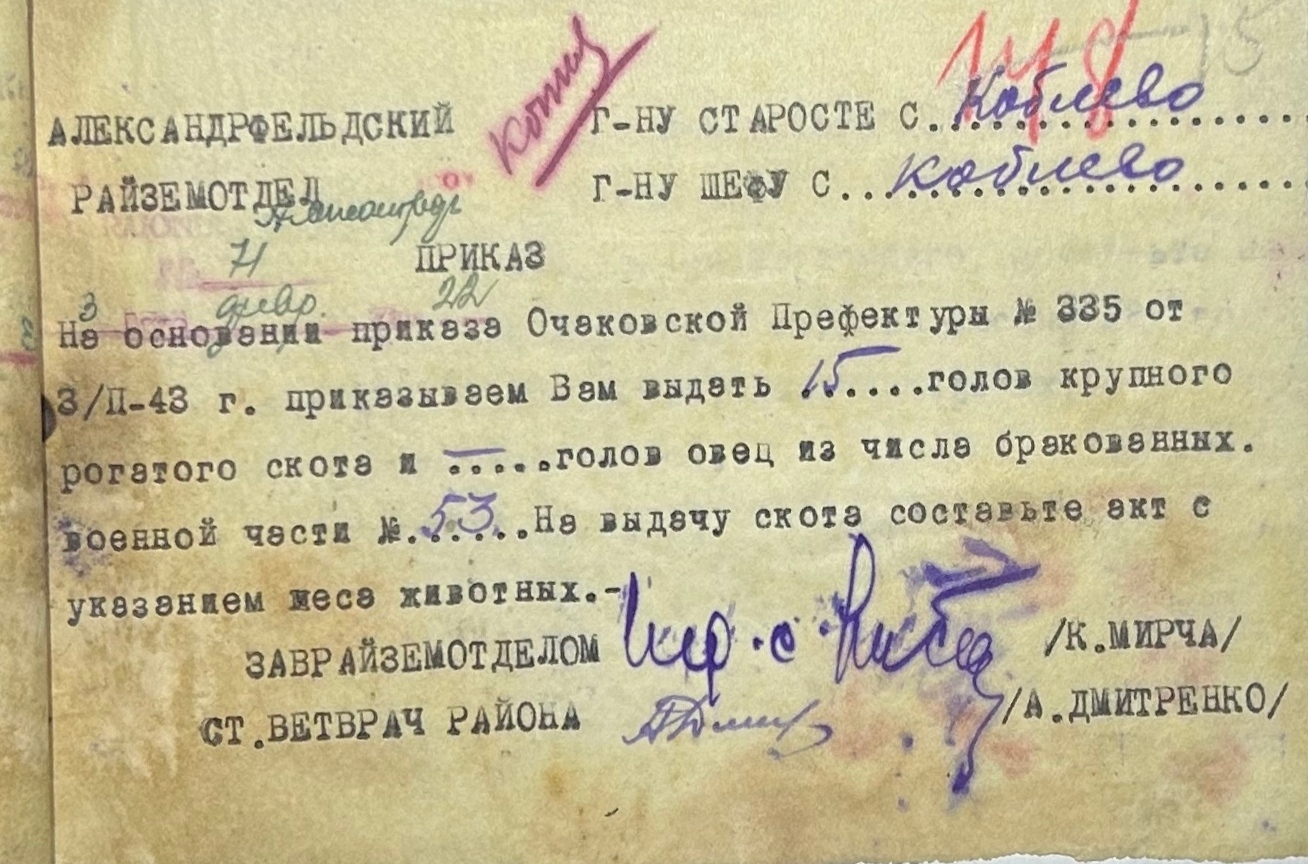 148 15
АЛЕКСАНДРФЕЛЬДСКИЙ Копия Г-НУ СТАРОСТЕ С. Коблево
РАЙЗЕМОТДЕЛ Г-НУ ШЕФУ С... Коблево
71 ПРИКАЗ
3 февр. 22
На основании приказа Очаковской Префектуры № 335 от
3/П-43 г. приказываем Вам выдать 15....голов крупного
рогатого скота и — .....голов овец из числа бракованных.
военной части №. 53..На выдачу скота составьте акт с
указанием меса животных.-
ЗАВРАЙЗЕМОТДЕЛОМ /К.МИРЧА/
СТ.ВЕТВРАЧ РАЙОНА /А.ДМИТРЕНКО/